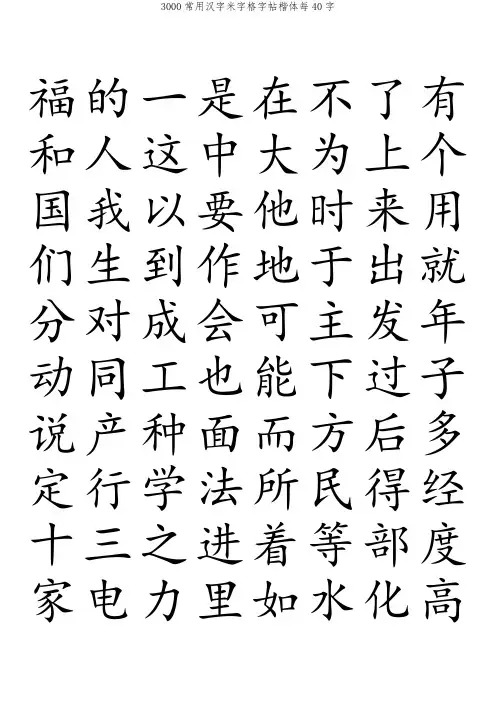 3000常用汉字米字格字帖楷体每40字
福的一是在不了有
和人这中大为上个
国我以要他时来用
们生到作地于出就
分对成会可主发年
动同工也能下过子
说产种面而方后多
定行学法所民得经
十三之进着等部度
家电力里如水化高